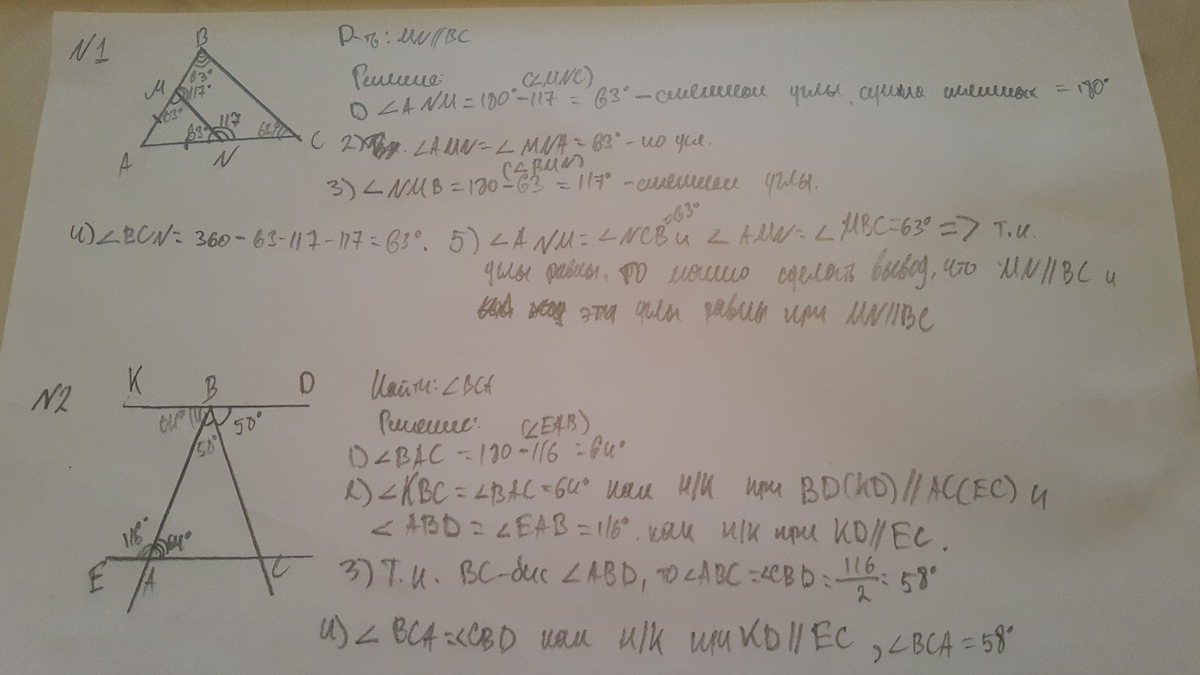 N1
Д-ть: MN||BC
B
63°
M
117°
63°
63°
117
63°
A
N
C
Решение:
(∠MNC)
1) ∠ANM = 180° - 117 = 63° - смежные углы, сумма смежных = 180°
2) ∠AMN = ∠MNA = 63° - по усл.
(∠BMN)
3) ∠NMB = 180 - 63 = 117° - смежные углы.
4) ∠BCN = 360 - 63 - 117 - 117 = 63°.
5) ∠ANM = ∠NCB = 63° и ∠AMN = ∠MBC = 63° => т.к.
углы равны, то можно сделать вывод, что MN||BC и
эти углы равны при MN||BC
N2
K
B
D
64°
50°
58°
116°
64°
E
A
C
Найти: ∠BCA
Решение:
(∠EAB)
1) ∠BAC = 180 - 116 = 64°
2) ∠KBC = ∠BAC = 64° как н/к при BD(KD)||AC(EC) и
∠ABD = ∠EAB = 116° как н/к при KD||EC.
3) Т.к. BC - бис ∠ABD, то ∠ABC = ∠CBD = 116/2 = 58°
4) ∠BCA = ∠CBD как н/к при KD||EC, ∠BCA = 58°